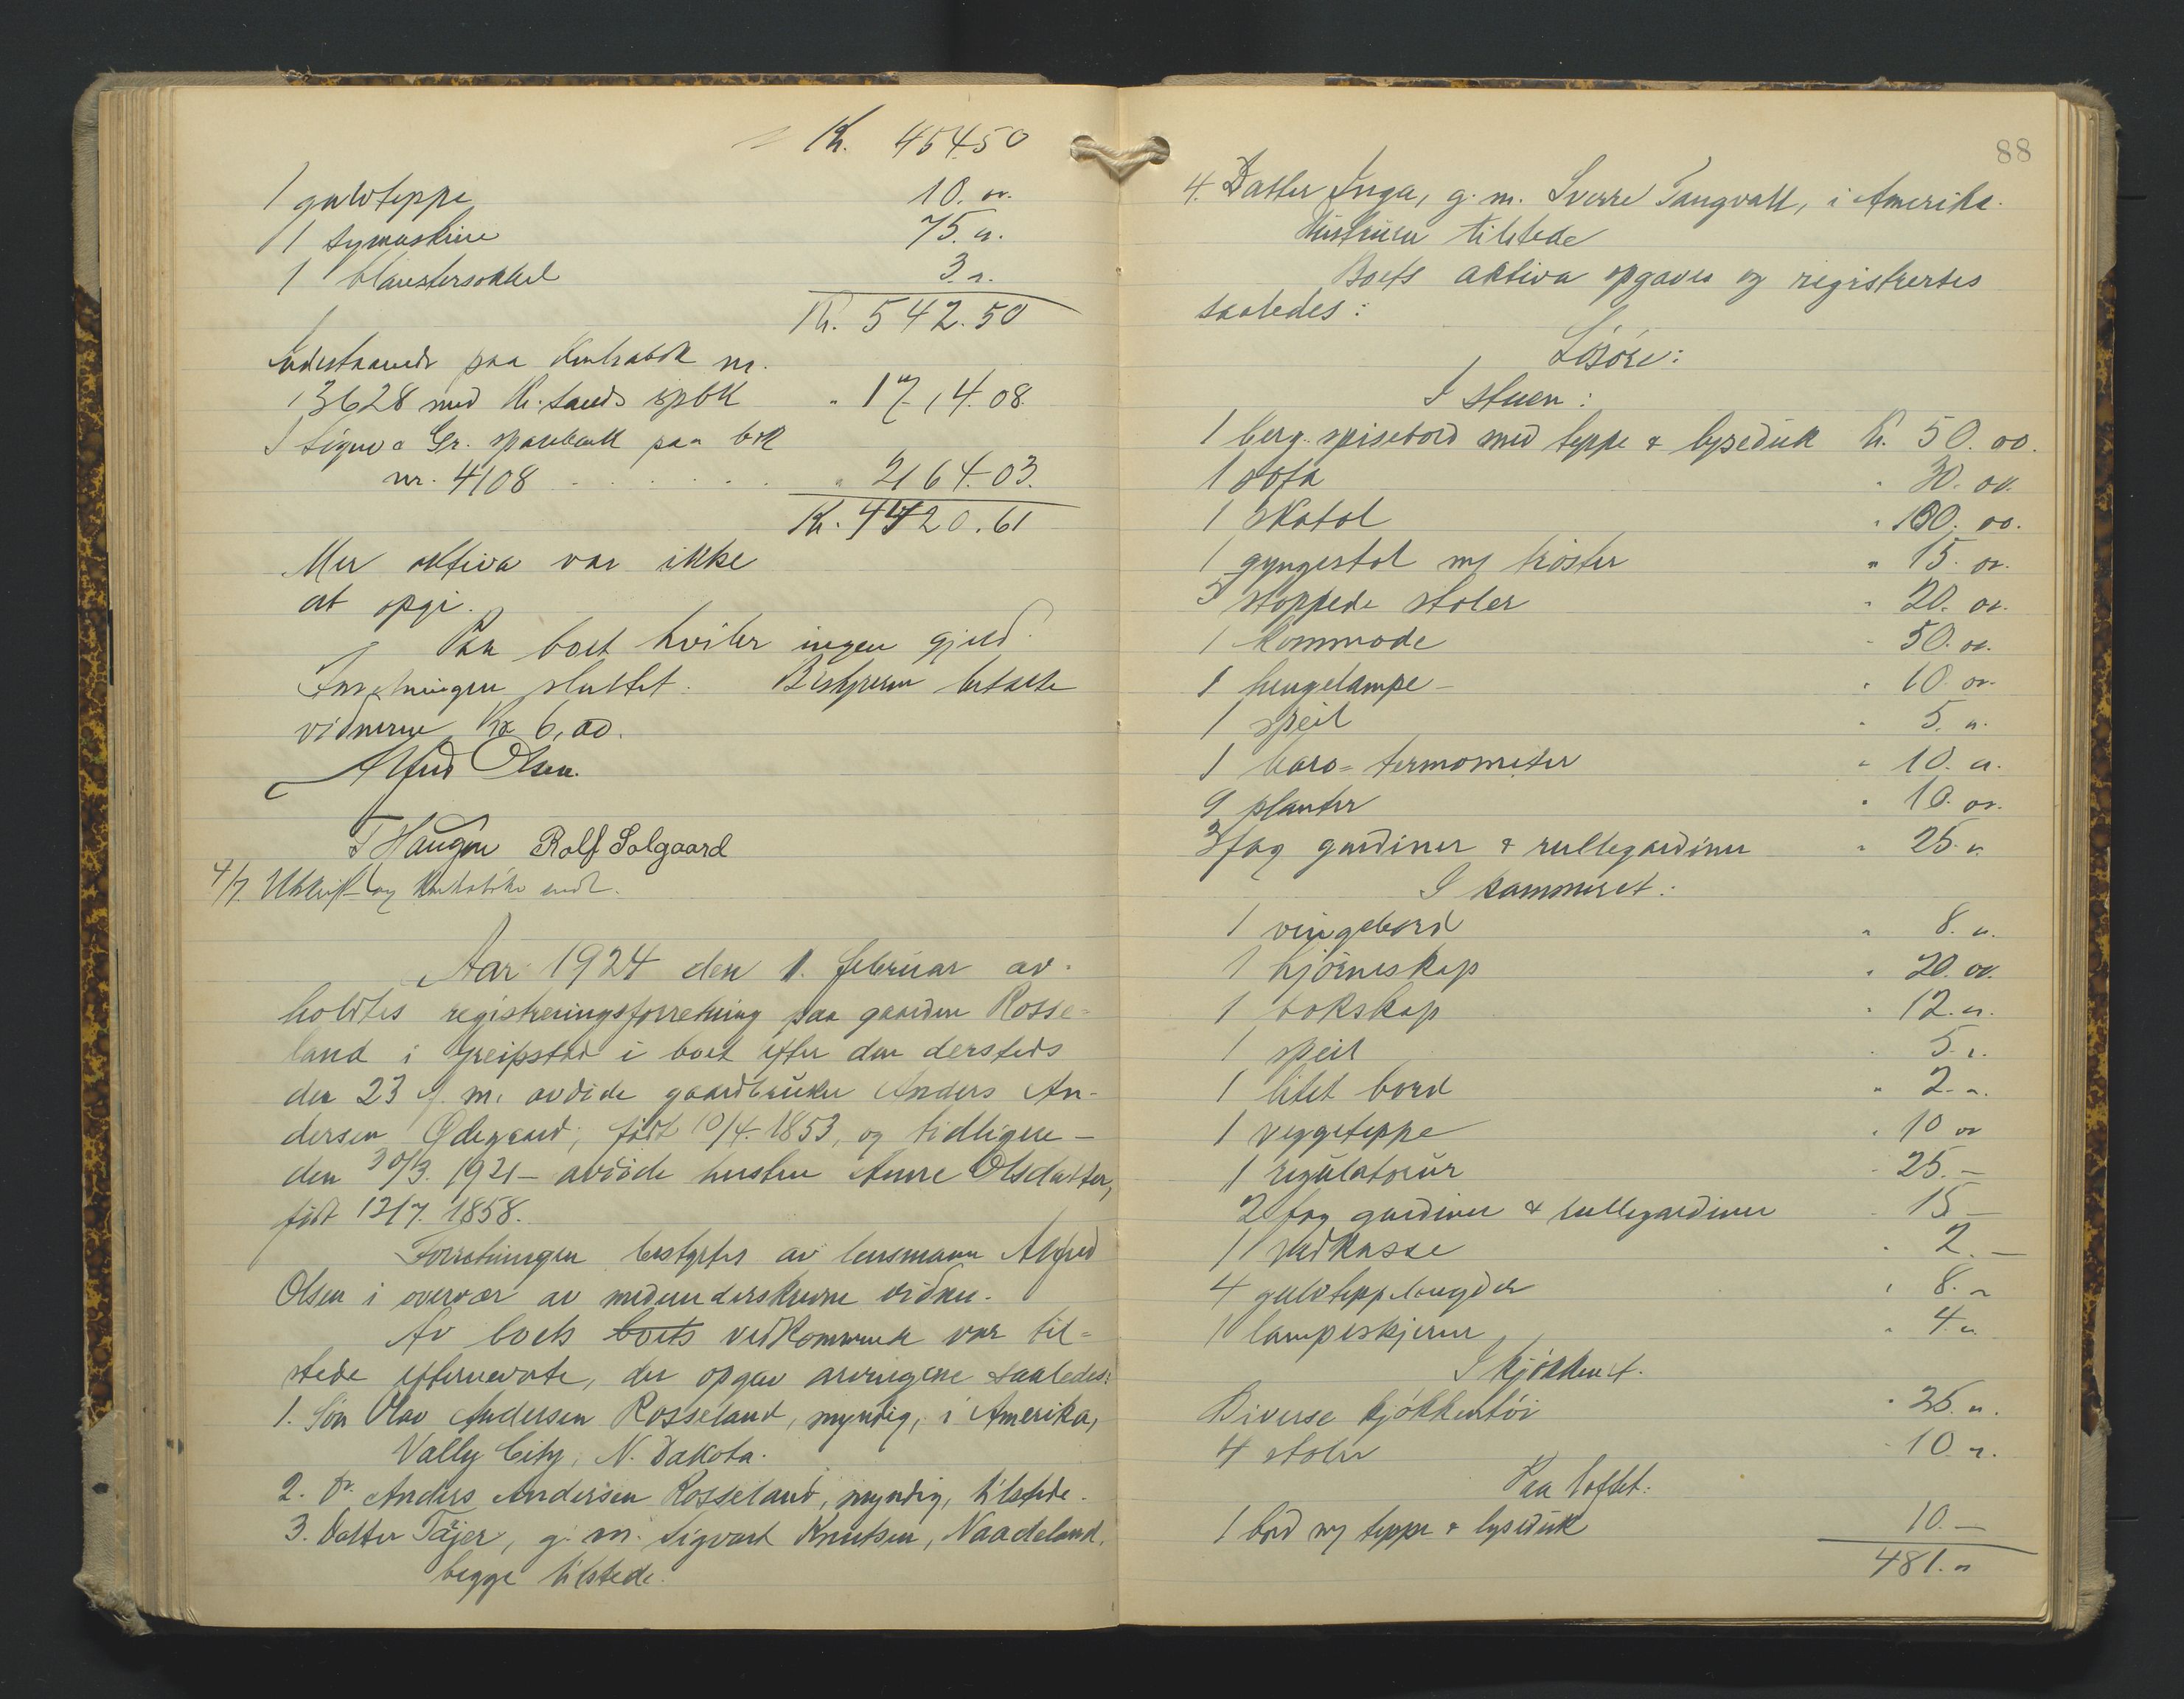 Kr. 454.50
1 gulvteppe 10. oo.
1 symaskine 75. "
1 blomstersokkel 3. "
Kr. 542.50
Indestaaende paa Kontrabok nr.
13628 med Kr.sands spbk " 1714.08
I Søgne & Gr. sparebank paa bok
nr. 4108 . . . . . " 2164.03.
Kr. 4420.61
Mer aktiva var ikke
at opgi.
Paa boet hviler ingen gjeld.
Forretningen sluttet. Bestyreren betalte
vidnerne Kr 6,00.
Alfred Olsen.
T Haugen Rolf Solgaard
4/7. Utskrift og kontrabøker sendt.
Aar 1924 den 1. februar av-
holdtes registreringsforretning paa gaarden Rosse=
land i Greipstad i boet efter den dersteds
den 23 f. m. avdøde gaardbruker Anders An-
dersen Ødegaard, født 10/4. 1853, og tidligere –
den 30/3. 1921 – avdøde hustru Anne Olsdatter,
født 12/7. 1858.
Forretningen bestyrtes av lensmann Alfred
Olsen i overvær av medunderskrevne vidner.
Av boets boets vedkommende var til=
stede efternevnte, der opgav arvingene saaledes:
1. Søn Olav Andersen Rosseland, myndig, i Amerika,
Vally City, N. Dakota.
2. Do. Anders Andersen Rosseland, myndig, tilstede.
3. Datter Tajer, g. m. Sigvart Knutsen, Naadeland,
begge tilstede.
88
4. Datter Inga, g. m. Sverre Tangvall, i Amerika.
Hustruen tilstede
Boets aktiva opgaves og registrertes
saaledes:
Løsøre:
I stuen:
1 berg. spisebord med teppe & lyseduk Kr. 50. oo.
1 sofa " 30. oo.
1 skatol " 130. oo.
1 gyngestol m/ trøster " 15. oo.
3 stoppede stoler " 20. oo.
1 kommode " 50. oo.
1 hengelampe – " 10. oo.
1 speil " 5. "
1 baro= termometer " 10. "
9 planter " 10. oo.
3 fag gardiner & rullegardiner " 25. "
I kammeret:
1 vingebord " 8. "
1 hjørneskap " 20. oo.
1 bokskap " 12. "
1 speil " 5. "
1 litet bord " 2. "
1 veggeteppe " 10 oo
1 regulatorur " 25. –
2 fag gardiner & rullegardiner " 15 –
1 vedkasse " 2. –
4 gulvteppelengder " 8. "
1 lampeskjerm " 4. "
I kjøkkenet.
Diverse kjøkkentøi " 25. "
4 stoler " 10. "
Paa loftet:
1 bord m/ teppe & lyseduk 10. –
481. "